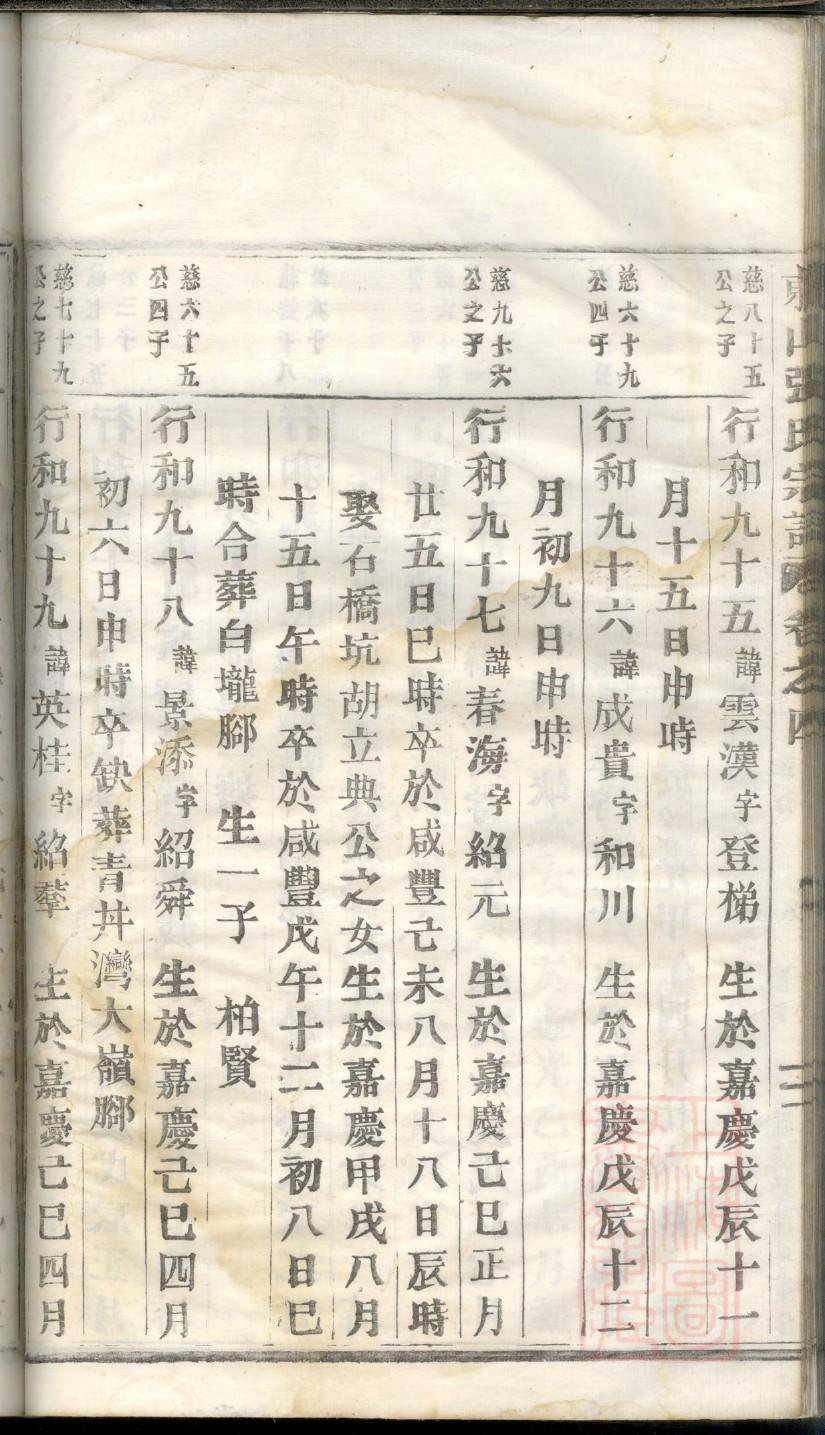 張氏宗譜 卷之四
慈八十五
公之子
行和九十五 諱 雲漢 字 登梯 生於嘉慶戊辰十一
月十五日申時
慈六十九
公四子
行和九十六 諱 成貴 字 和川 生於嘉慶戊辰十二
月初九日申時
慈九十六
公之子
行和九十七 諱 春海 字 紹元 生於嘉慶己巳正月
廿五日巳時卒於咸豐己未八月十八日辰時
娶石橋坑胡立典公之女生於嘉慶甲戌八月
十五日午時卒於咸豐戊午十二月初八日巳
時合葬白壠腳 生一子 柏賢
慈六十五
公四子
行和九十八 諱 景添 字 紹舜 生於嘉慶己巳四月
初六日申時卒缺葬青井灣大嶺腳
慈七十九
公之子
行和九十九 諱 英桂 字 紹羣 生於嘉慶己巳四月